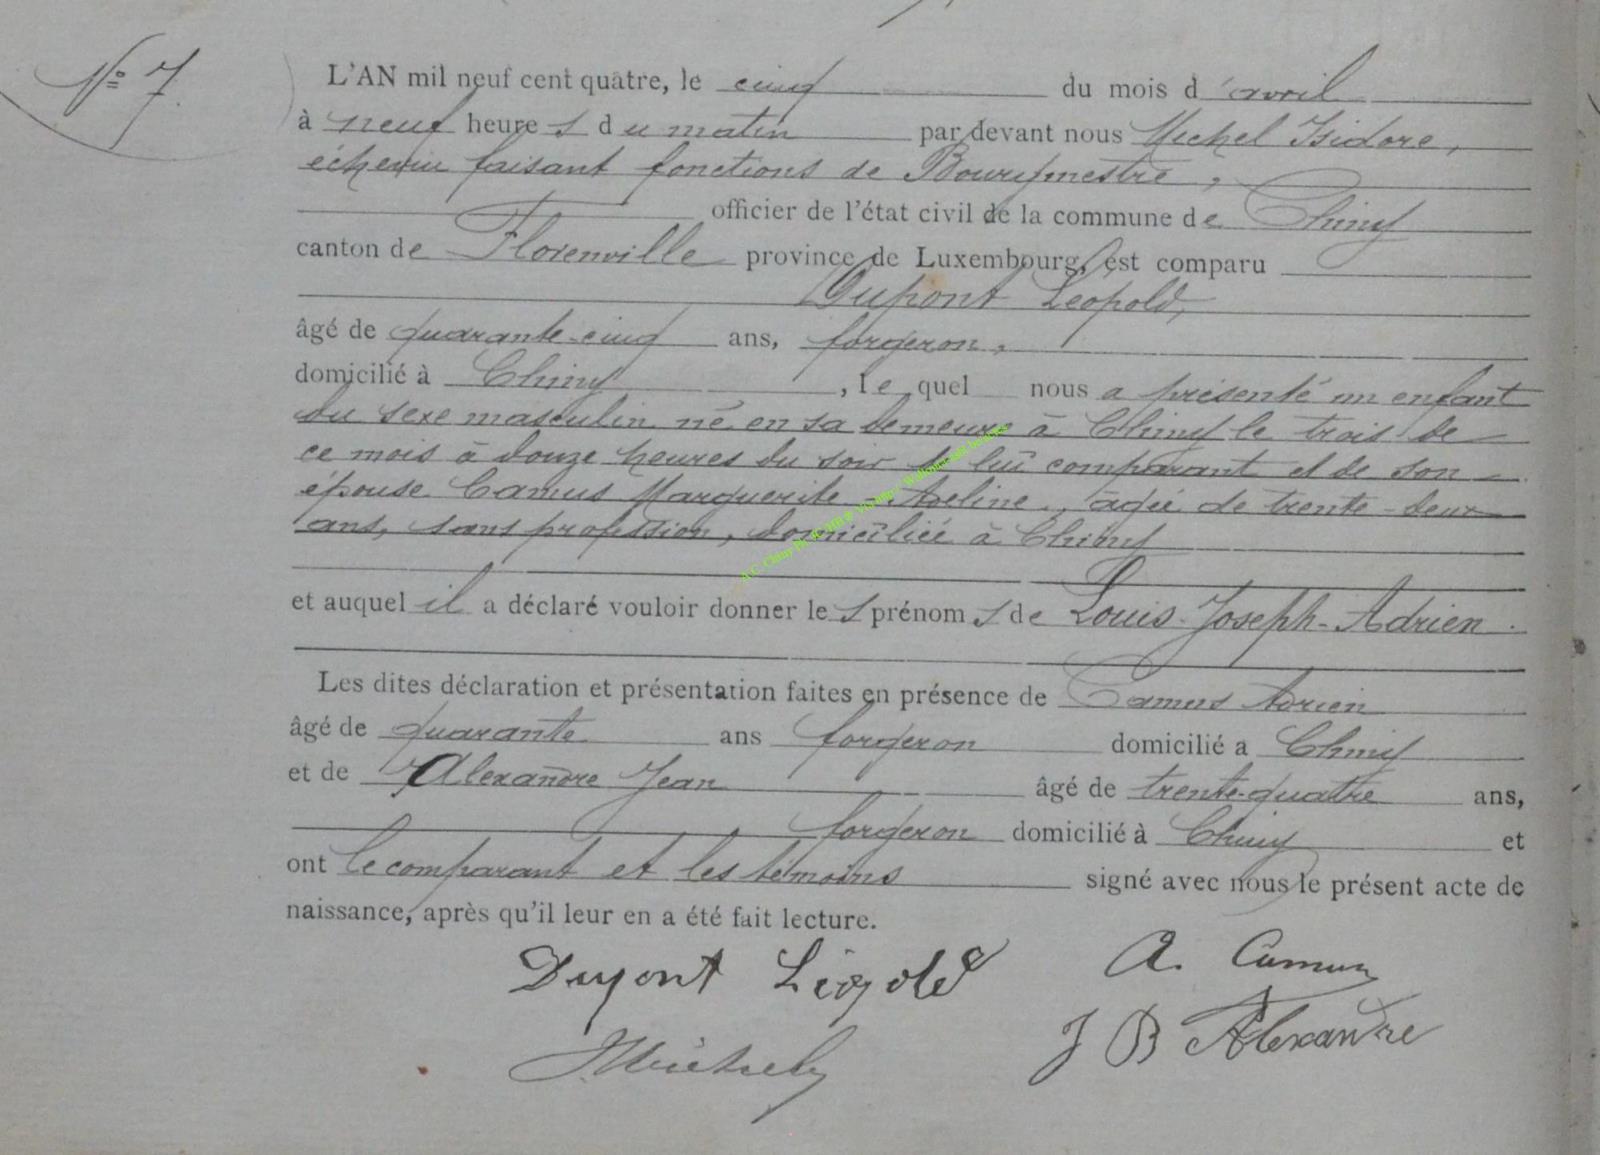 N° 7.
L'AN mil neuf cent quatre, le cinq du mois d'avril
à neuf heures du matin par devant nous Michel Isidore,
échevin faisant fonctions de Bourgmestre,
officier de l'état civil de la commune de Chiny
canton de Florenville province de Luxembourg, est comparu
Dupont Léopold,
âgé de quarante-cinq ans, forgeron,
domicilié à Chiny, lequel nous a présenté un enfant
du sexe masculin né en sa demeure à Chiny le trois de
ce mois à douze heures du soir de lui comparant et de son
épouse Camus Marguerite-Adeline, âgée de trente-deux
ans, sans profession, domiciliée à Chiny
et auquel il a déclaré vouloir donner les prénoms de Louis-Joseph-Adrien.
Les dites déclaration et présentation faites en présence de Camus Adrien
âgé de quarante ans forgeron domicilié a Chiny
et de Alexandre Jean âgé de trente-quatre ans,
forgeron domicilié à Chiny et
ont le comparant et les témoins signé avec nous le présent acte de
naissance, après qu'il leur en a été fait lecture.
Dupont Léopold A. Camus
IMichel J B Alexandre